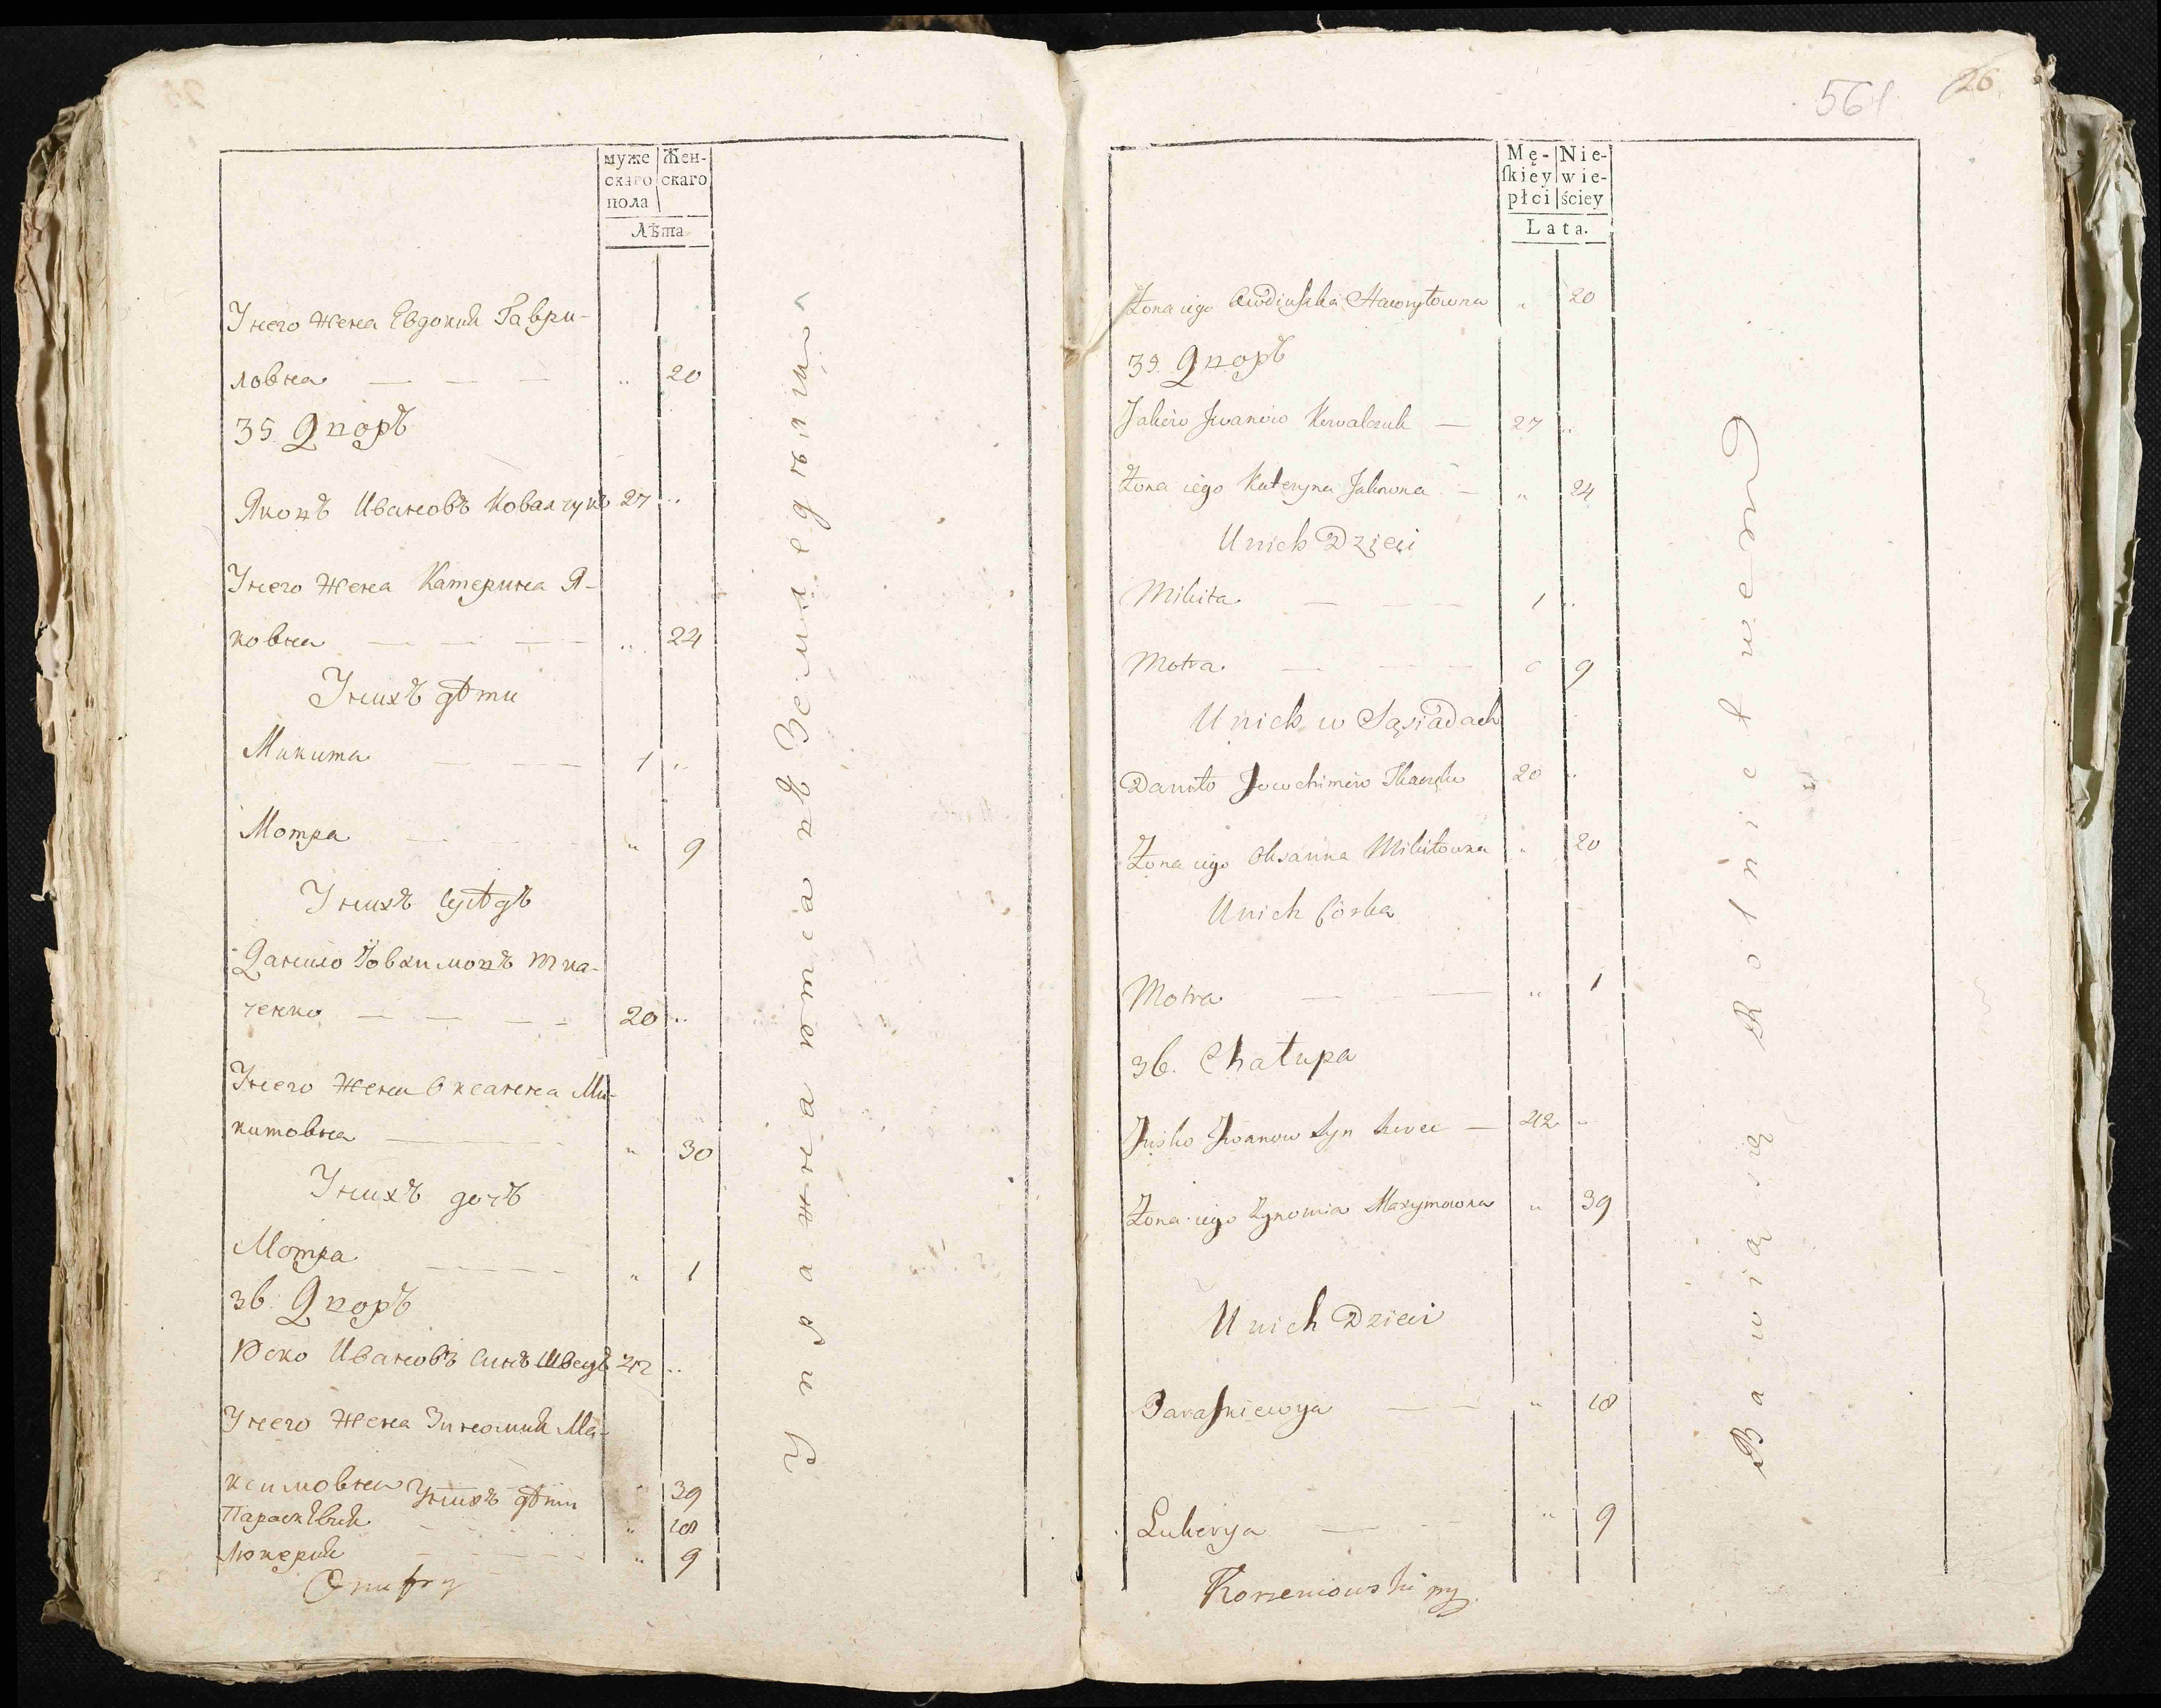 муже
скаго
пола
жен-
скаго
Лѣта
Унего жена Евдокия Гаври-
ловна — — — „ 20
35 Дворъ
Яковъ Ивановъ Ковалчукъ 27 „
Унего жена Катерина Я-
ковна — — — „ 24
Унихъ дѣти
Микита — — 1 „
Мотра — — „ 9
Унихъ Сусѣдъ
Данило Ювхимовъ Тка-
ченко — — — 20 „
Унего жена Оксанна Ми-
китовна — „ 30
Унихъ дочь
Мотра — „ 1
36. Дворъ
Юско Ивановъ Синъ Швецъ 42 „
Унего жена Зиновия Ма-
ксимовна „ 39
Унихъ дѣти
Параскѣвия „ 18
Люкерия „ 9
Onufry
Упражняются въ Земледѣлии
561
26
Mę-
skiey
płci
Nie-
wie-
ściey
Lata.
Żona iego Awdiuszka Hawryłowna „ 20
35. Дворъ
Jakow Iwanow Kowalczuk — 27 „
Żona iego Kateryna Jakowna — „ 24
U nich Dzieci
Mikita — — 1 „
Motra — — „ 9
U nich w Sąsiadach
Daniło Jowchimow Tkaczenko 20 „
Żona iego Oksanna Mikitowna „ 20
U nich Córka
Motra — — „ 1
36. Chałupa
Jusko Iwanow Syn Szwec — 42 „
Żona iego Zynowia Maxymowna „ 39
U nich Dzieci
Paraskiewya — „ 18
Lukerya — „ 9
Korzeniowski
Bawią się Rolnictwem